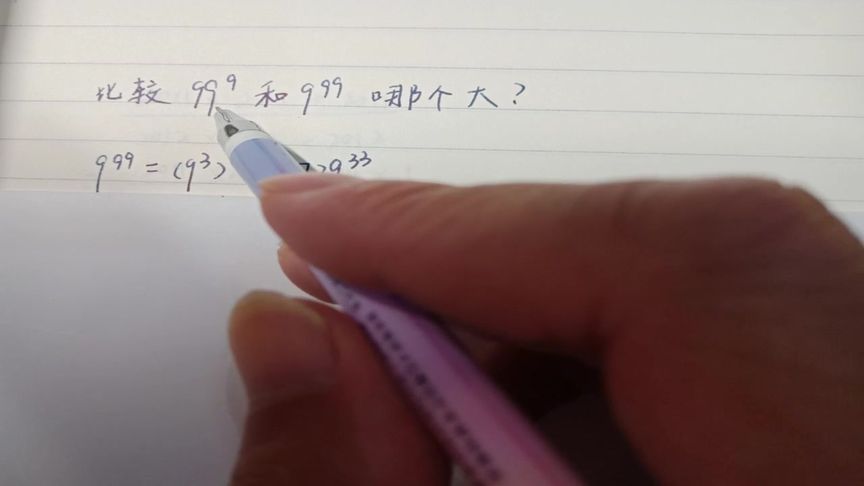 比较 99⁹ 和 9⁹⁹ 哪个大?
9⁹⁹ = (9³) 9³³